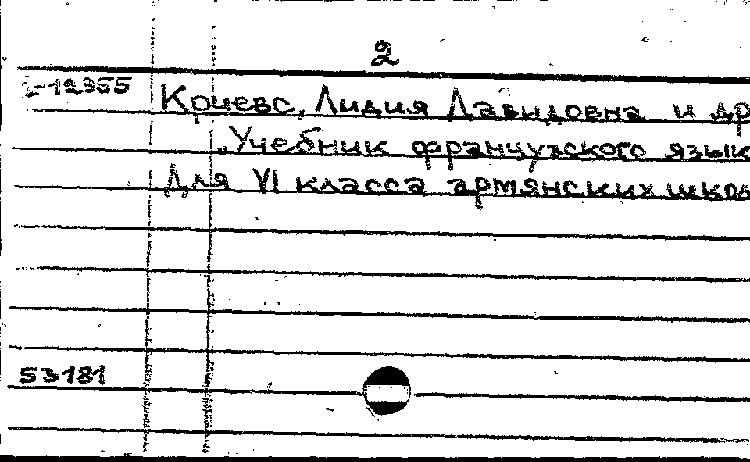 2
-12355
Кочева, Лидия Давидовна и др
Учебник французского язык
Для VI класса армянских шко
53181